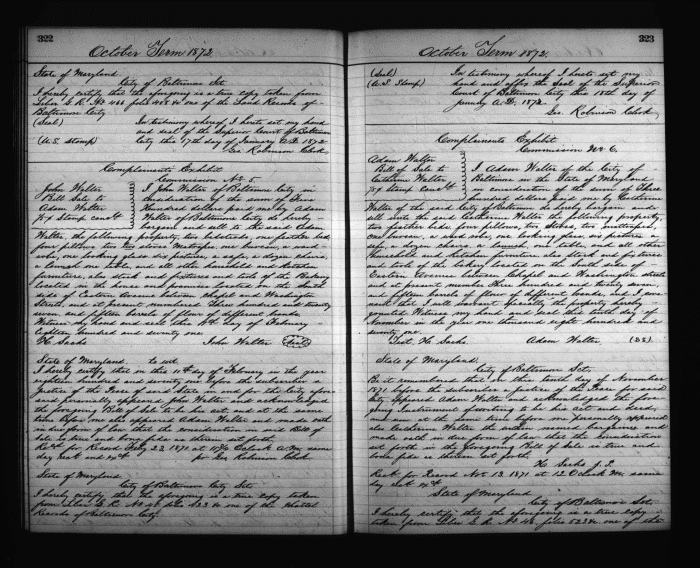 322
October Term 1872.
State of Maryland
City of Baltimore Sct
I hereby certify that the aforegoing is a true copy taken from
Liber G. R. No 466 folio &c one of the Land Records of
Baltimore City
(Seal) In testimony whereof I hereto set my hand
and seal of the Superior Court of Baltimore
(U.S. Stamp) City this 17th day of January A.D. 1872
Geo Robinson Clerk
Complainants Exhibit
Commission No 5.
John Walter I John Walter of Baltimore City in
Bill Sale to consideration of the sum of Five
Adam Walter hundred dollars paid me by Adam
Stamp Walter of Baltimore City do hereby
bargain and sell to the said Adam
Walter, the following property, two bedsteads, one feather bed,
four pillows, two stoves Matrasses, one bureau, a ward
robe, one looking glass six pictures, a safe, a dozen chairs,
a lounch one table, and all other household and kitchen
furniture, also stock and fixtures and tools of the Bakery
located in the house and premises located on the South
side of Eastern Avenue between Chapel and Washington
Streets and at present numbered Three hundred and twenty
seven and fifteen barrels of flour of different brands.
Witness my hand and seal this day of February
Eighteen hundred and seventy one.
Ho Sachs John Walter (Seal)
State of Maryland, to wit
I hereby certify that on this 11th day of February in the year
eighteen hundred and seventy one before the subscriber a
Justice of the Peace of said State in and for the City afore
said personally appeared John Walter and acknowledged
the foregoing Bill of Sale to be his act, and at the same
time before me also appeared Adam Walter and made oath
in due form of law that the consideration in said Bill of
Sale is true and bona fide as therein set forth.
Recd for Record Feby 23 1871 at Oclock A.M. same
day recd and Geo Robinson Clerk
State of Maryland
City of Baltimore City Sct
I hereby certify that the aforegoing is a true copy taken
from Liber G. R. No 48 folio &c one of the Chattel
Records of Baltimore City
323
October Term 1872.
(Seal) In testimony whereof I hereto set my
(U.S. Stamp) hand and affix the Seal of the Superior
Court of Baltimore City this 18th day of
January A.D. 1872.
Geo Robinson Clerk
Complainants Exhibit
Commission No 6.
Adam Walter
Bill of Sale to I Adam Walter of the City of
Catherine Walter Baltimore in the State of Maryland
Stamp in consideration of the sum of Three
hundred dollars paid me by Catherine
Walter of the said City of Baltimore do hereby bargain and
sell unto the said Catherine Walter the following property,
two feather beds, four pillows, two Stoves, two mattrasses,
one bureau, a ward robe, one looking glass six pictures a
safe, a dozen chairs, a launch, one table, and all other
household and kitchen furniture also stock and fixtures
and tools of the bakery located on the South side of
Eastern Avenue between Chapel and Washington streets
and at present number Three hundred and twenty seven,
and fifteen barrels of flour of different brands, and I cove
nant that I will warrant specially the property hereby
conveyed Witness my hand and seal this tenth day of
November in the year one thousand eight hundred and
seventy one
Test. Ho. Sachs. Adam Walter.
State of Maryland.
City of Baltimore Sct.
Be it remembered that on this tenth day of November
1871 before the subscriber a justice of the Peace for said
City appeared Adam Walter and acknowledged the fore
going instrument of writing to be his act and deed,
and now at the same time before me personally appeared
also Catherine Walter the within named bargainee and
made oath in due form of law that the consideration
set forth in the foregoing Bill of Sale is true and
bona fide as therein set forth
Ho Sachs J.P.
Recd for Record Nov 13 1871 at 12 OClock M. same
day
State of Maryland
City of Baltimore Sct.
I hereby certify that the aforegoing is a true copy
taken from Liber G. R. No 48. folio 523 &c one of the